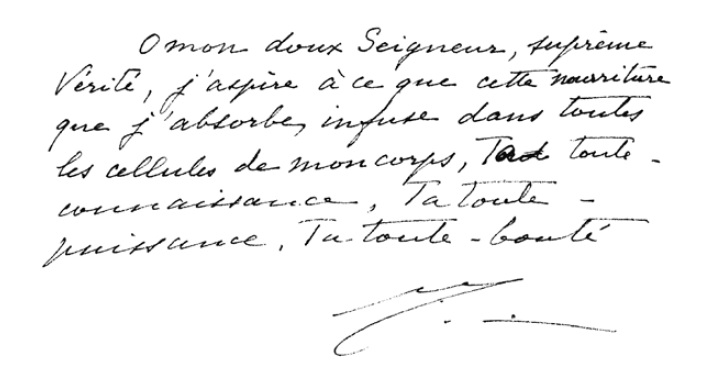 O mon doux Seigneur, suprême
Vérité, j'aspire à ce que cette nourriture
que j'absorbe, infuse dans toutes
les cellules de mon corps, Ta toute-
connaissance, Ta toute-
puissance, Ta toute-bonté